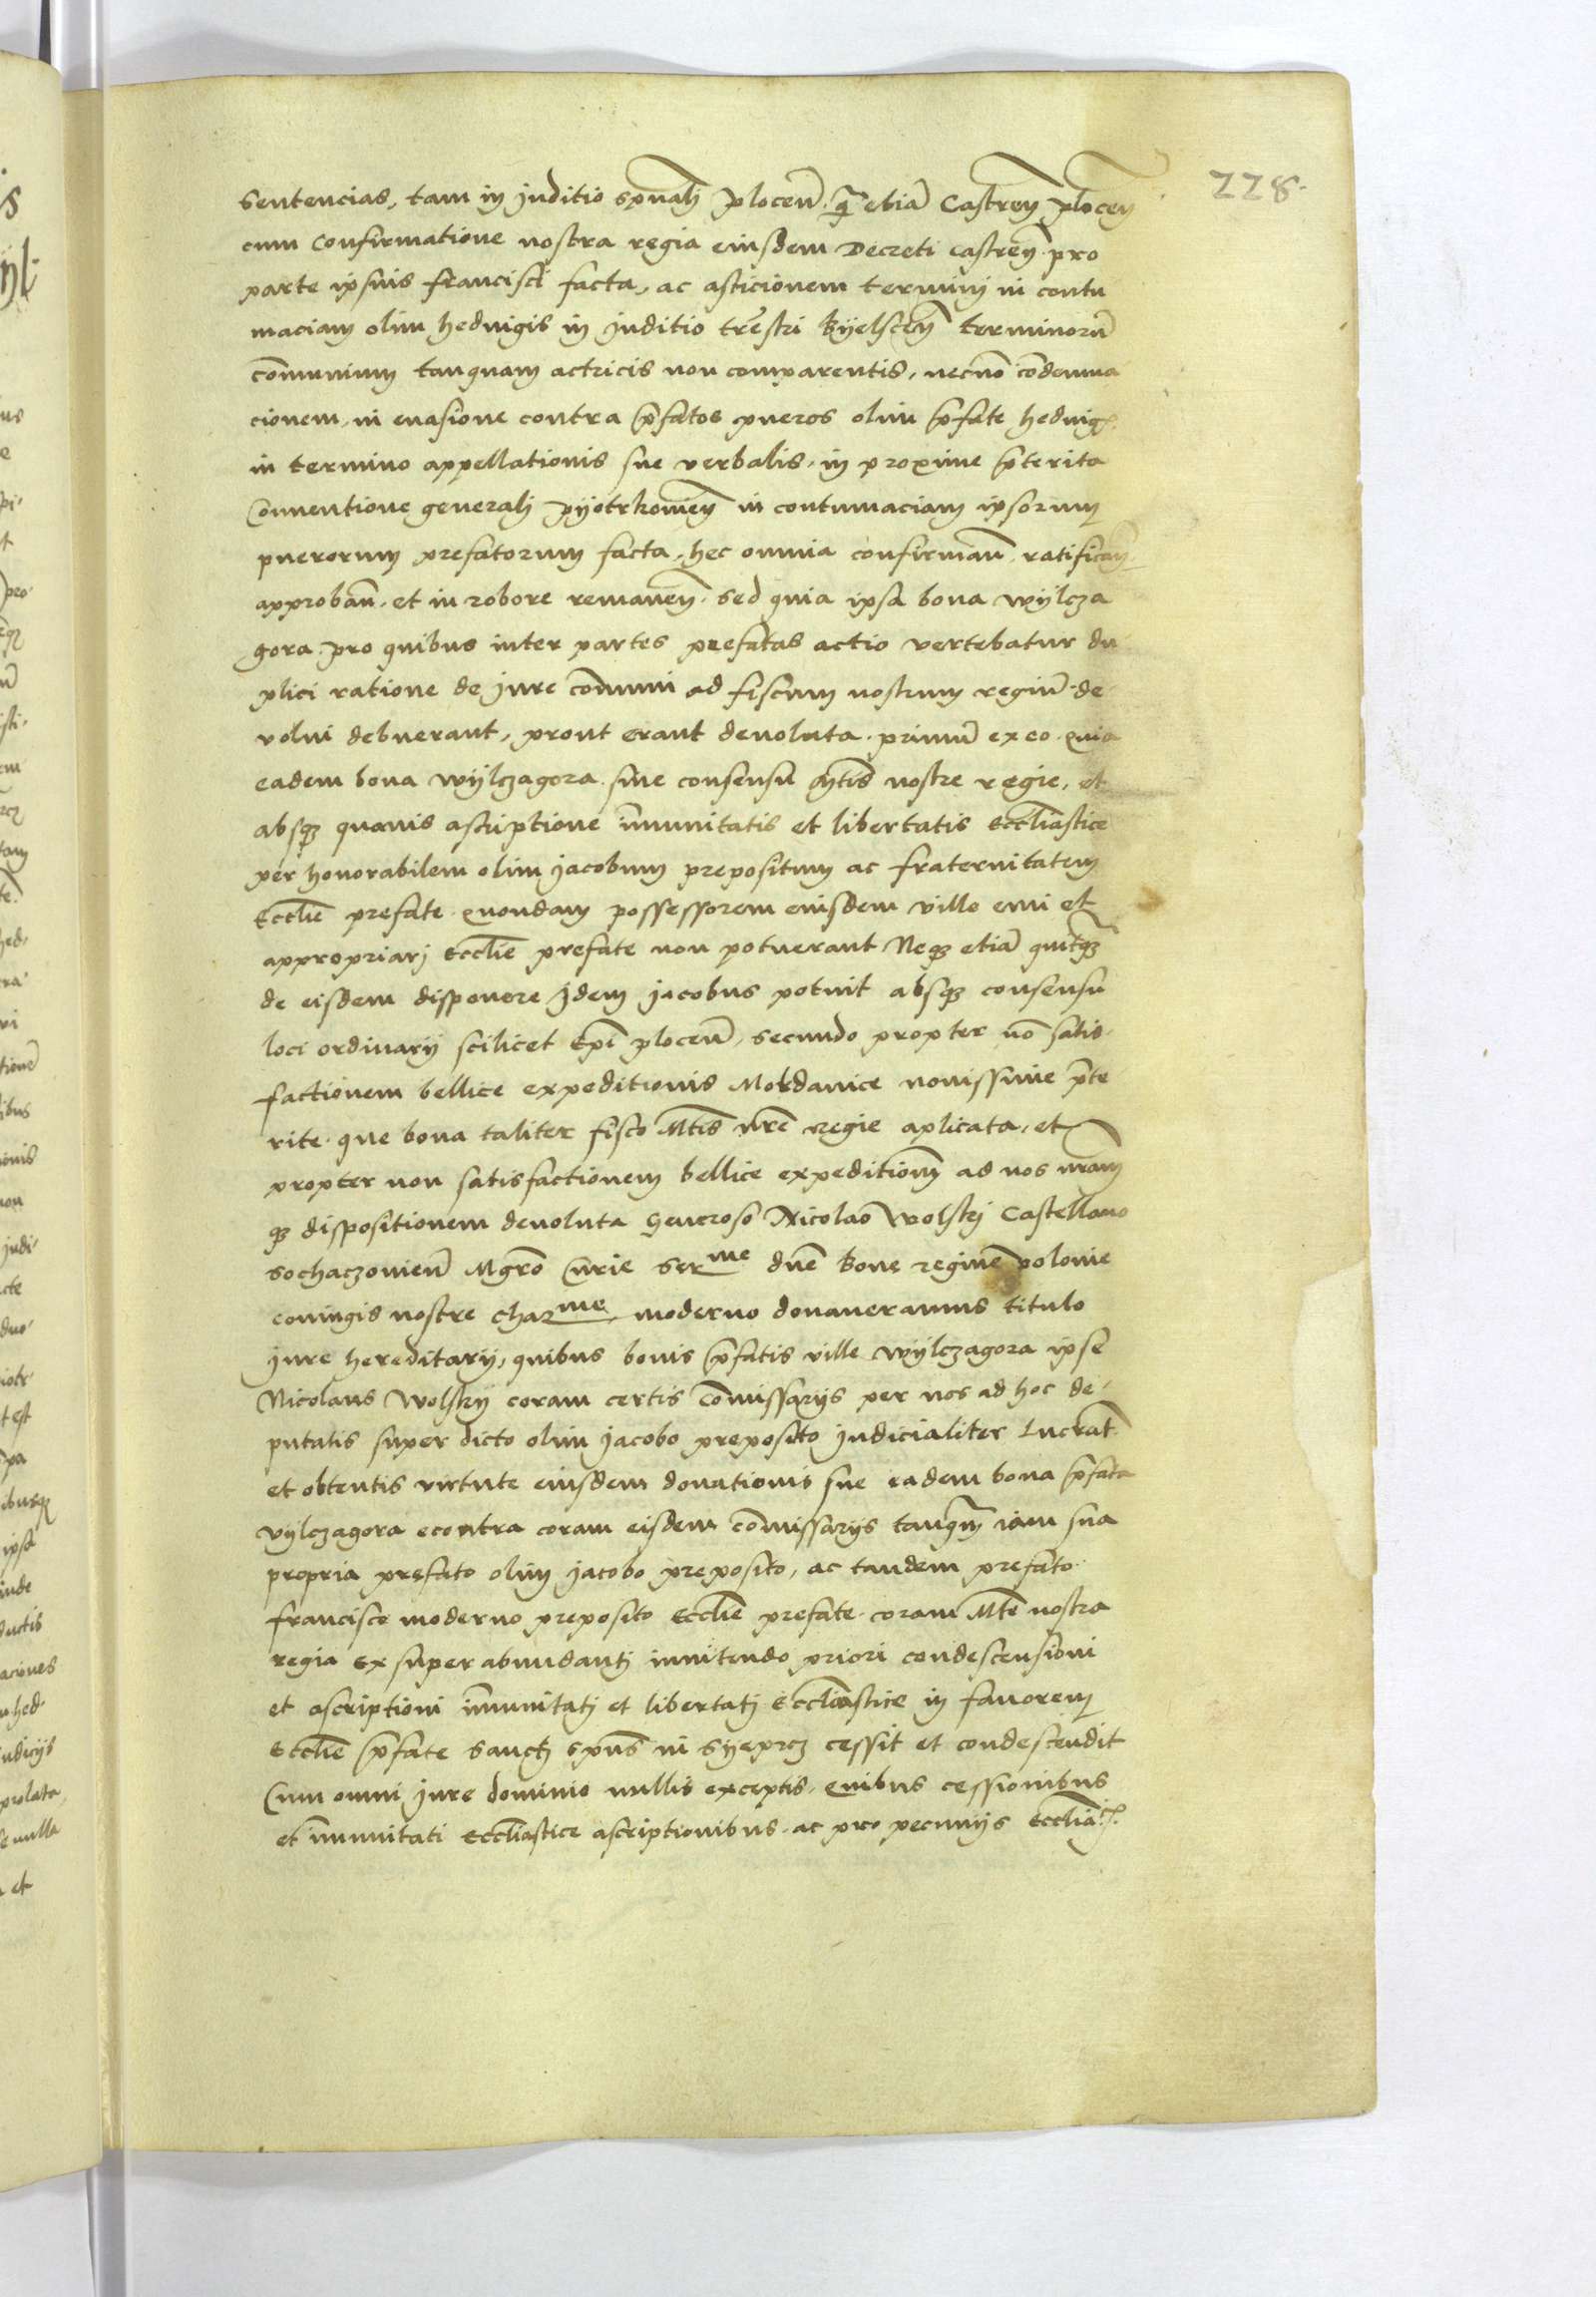 228.
sentencias, tam in Juditio spualj plocen̄. q̃ etiã Castren̄ plocen̄
cum Confirmatione nostra regia eiusdem Decreti castren̄. pro
parte ipsius francisci facta, ac asticionem termini in contu
maciam olim hedvigis in Juditio tr̃estri Byelscen̄ terminorũ
cõmunium tanquam actricis non comparentis, necnõ cõdemna
cionem, in evasione contra p̃fatos pueros olim p̃fate hedvig.
in termino appellationis sue verbalis, in proxime p̃terita
Conventione generalj pyotrkovien̄ in contumaciam ipsorum
puerorum prefatorum facta, hec omnia confirman̄. ratifican̄
approban̄. et in robore remanen̄. sed quia ipsa bona wylcza
gora. pro quibus inter partes prefatas actio vertebatur du
plici ratione de Jure cõmuni ad fiscum nostrum regiũ. de
volui debuerant, prout erant devoluta. primũ ex eo. quia
eadem bona wylczagora. sine consensu Mtis nostre regie, et
absq3 quavis ascriptione im̃unitatis et libertatis Ecclĩastice
per honorabilem olim Jacobum prepositum ac fraternitatem
Ecclie prefate quondam possessorem eiusdem ville emi et
appropriarj Ecclie prefate non potuerant Neq3 etiã quitq̃3
de eisdem disponere Jdem Jacobus potuit absq3 consensu
loci ordinarij scilicet Epĩ plocen̄, secundo propter nõ satis
factionem bellice expeditionis Moldavice novissime p̃te
rite. que bona taliter fisco Mtis nr̃e regie aplicata, et
propter non satisfactionem bellice expedition̄ ad nos nr̃am
q3 dispositionem devoluta Generoso Nicolao Wolskj Castellano
sochaczovien̄ Mgrõ Curie serme dn̄e Bone regine polonie
coniugis nostre charme, moderno donaveramus titulo
Jure hereditarij, quibus bonis p̃fatis ville wylczagora ipse
Nicolaus Wolskj coram certis cõmissarijs per nos ad hoc de
putatis super dicto olim Jacobo preposito Judicialiter Lucrat̃.
et obtentis virtute eiusdem donationis sue eadem bona p̃fata
vylczagora econtra coram eisdem cõmissarijs tanq̃m iam sua
propria prefato olim Jacobo preposito, ac tandem prefato
francisco moderno preposito Ecclie prefate. coram Mte nostra
regia ex super abundantj innitendo priori condescensioni
et ascriptioni im̃unitatj et libertatj Ecclĩastice in favorem
Ecclie p̃fate sanctj spũs in syeprcz cessit et condescendit
Cum omni Jure dominio nullis exceptis. Quibus cessionibus
et im̃unitati Ecclĩastice ascriptionibus. ac pro pecunijs Ecclĩa